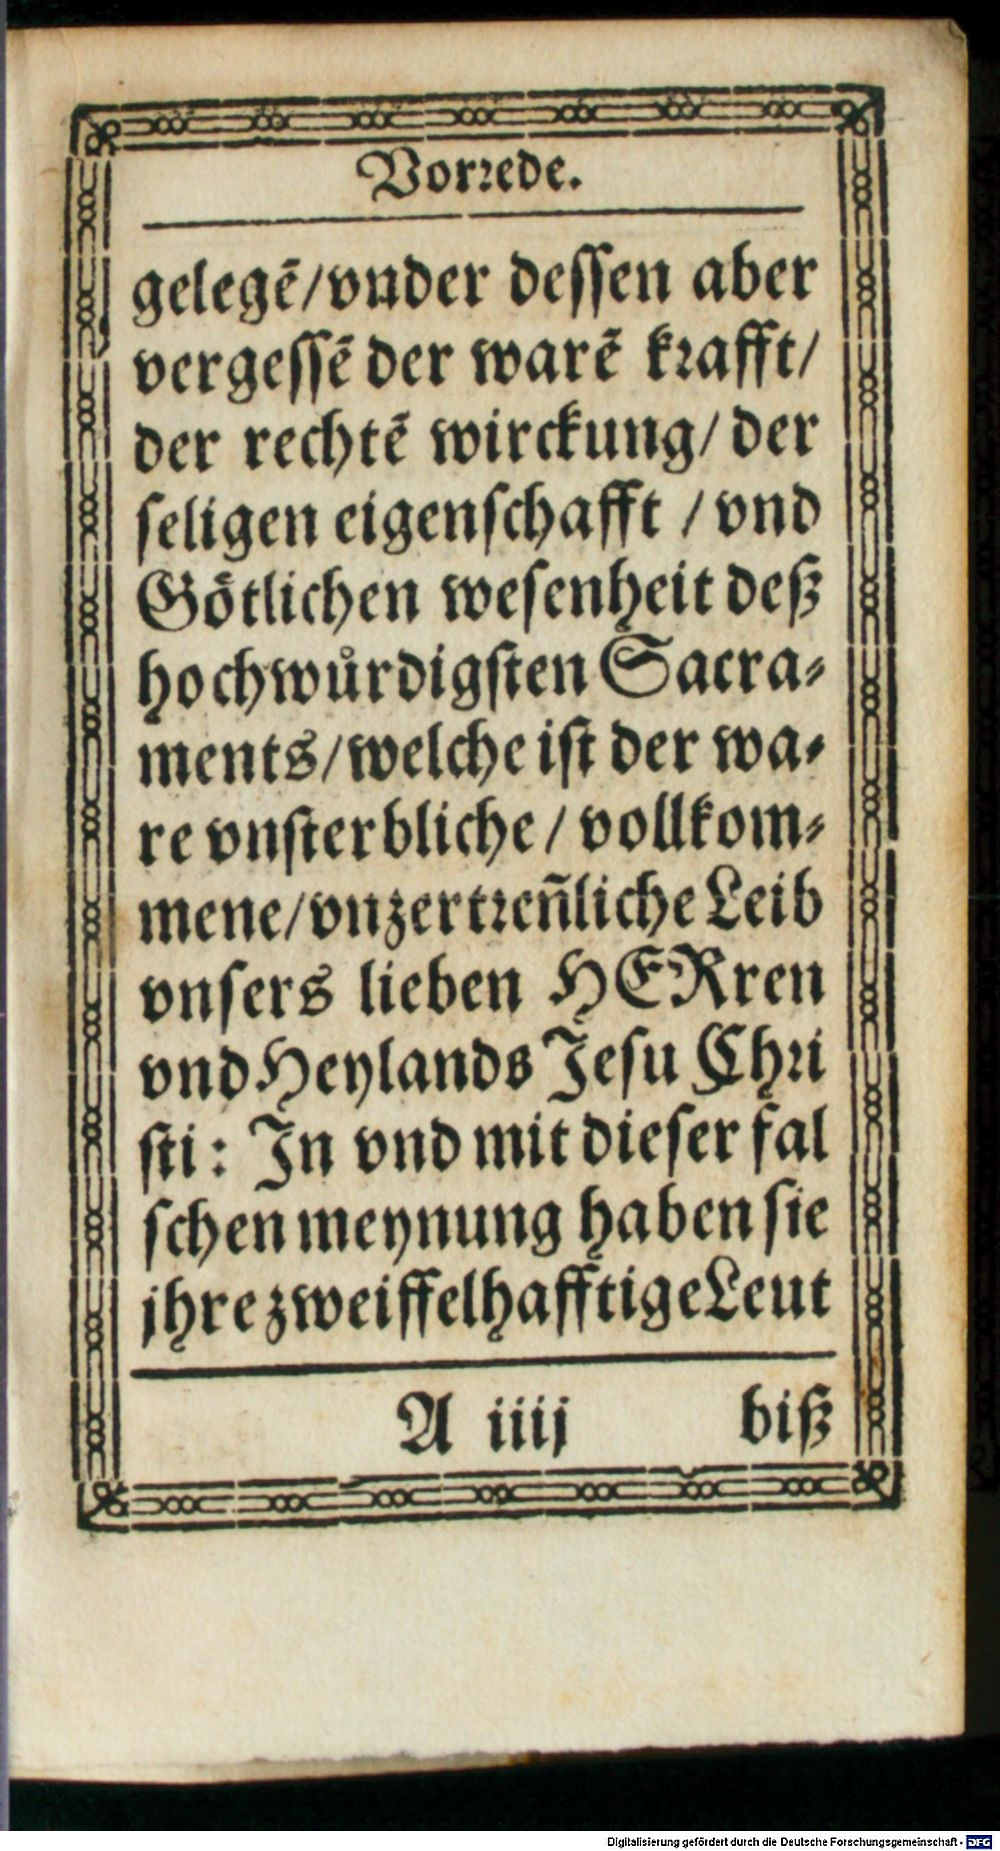 Vorꝛede.
gelegẽ/vnder deſſen aber
vergeſſẽ der warẽ kꝛafft/
der rechtẽ wirckung/ der
ſeligen eigenſchafft / vnd
Goͤtlichen weſenheit deß
hochwuͤrdigſten Sacra⸗
ments/welche iſt der wa⸗
re vnſterbliche / vollkom⸗
mene/vnzertꝛen̄liche Leib
vnſers lieben HERren
vnd Heylands Jeſu Chꝛi
ſti: In vnd mit dieſer fal
ſchen meynung haben ſie
jhre zweiffelhafftige Leut
A iiij biß
Digitalisierung gefördert durch die Deutsche Forschungsgemeinschaft - DFG